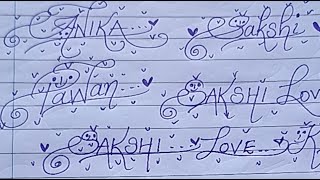 ANIKA Sakshi
Pawan SAKSHI Lov
SAKSHI LOVE K